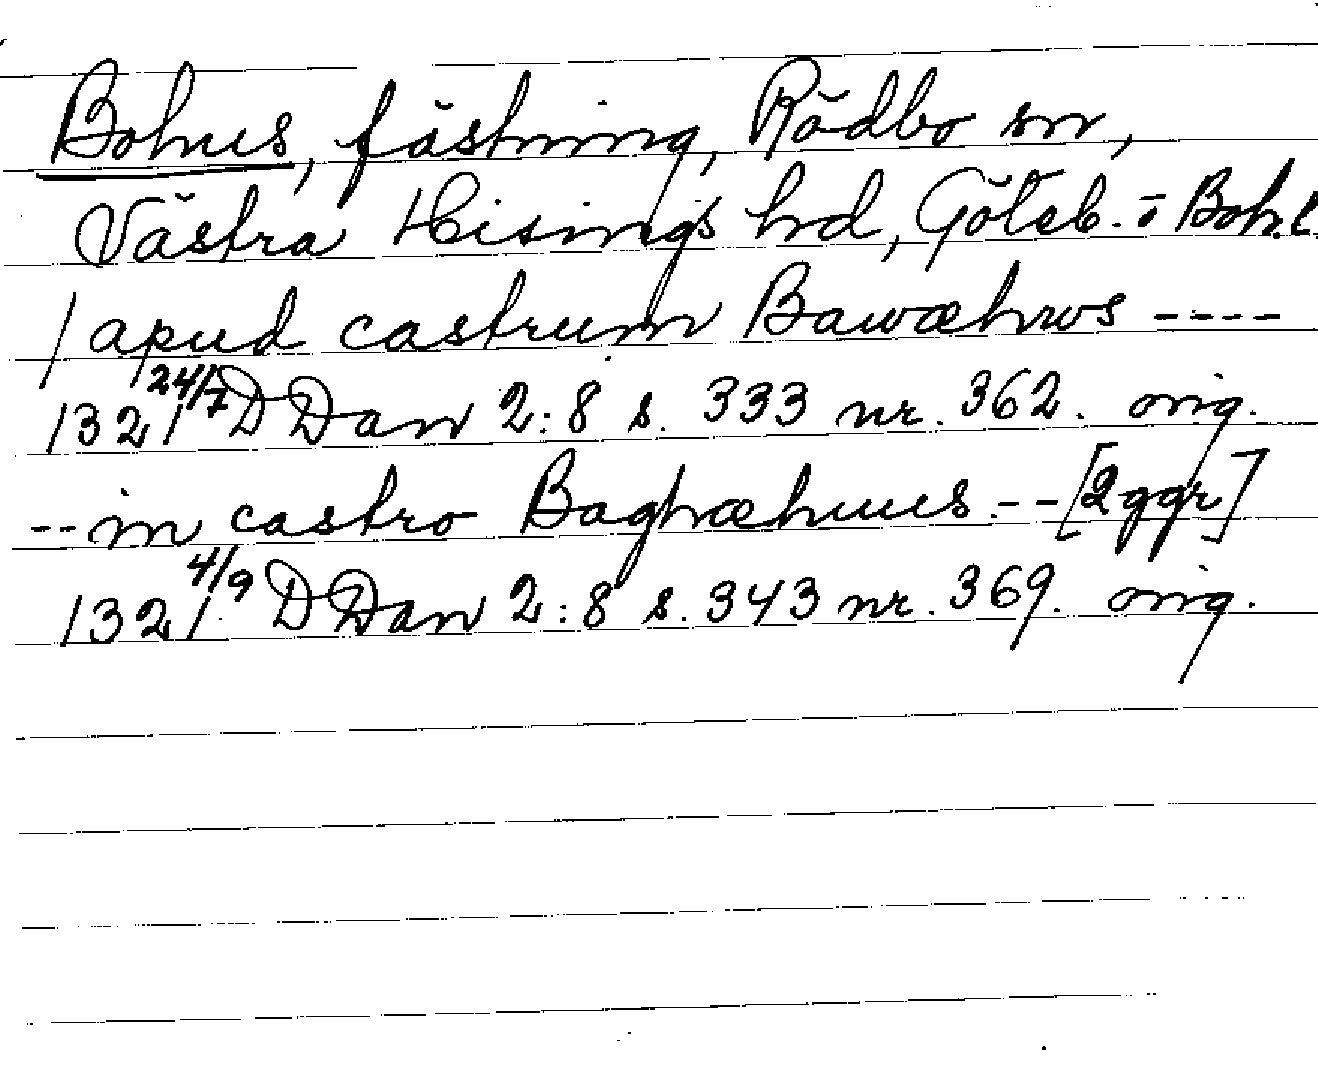 Bohus, fästning, Rödbo sn,
Västra Hisings hd, Göteb. o Boh. l
/ apud castrum Bawæhws ----
1321 24/7 DDan 2:8 s. 333 nr. 362. orig.
-- in castro Baghæhuus. -- [2 ggr]
1321 4/9 DDan 2:8 s. 343 nr. 369. orig.